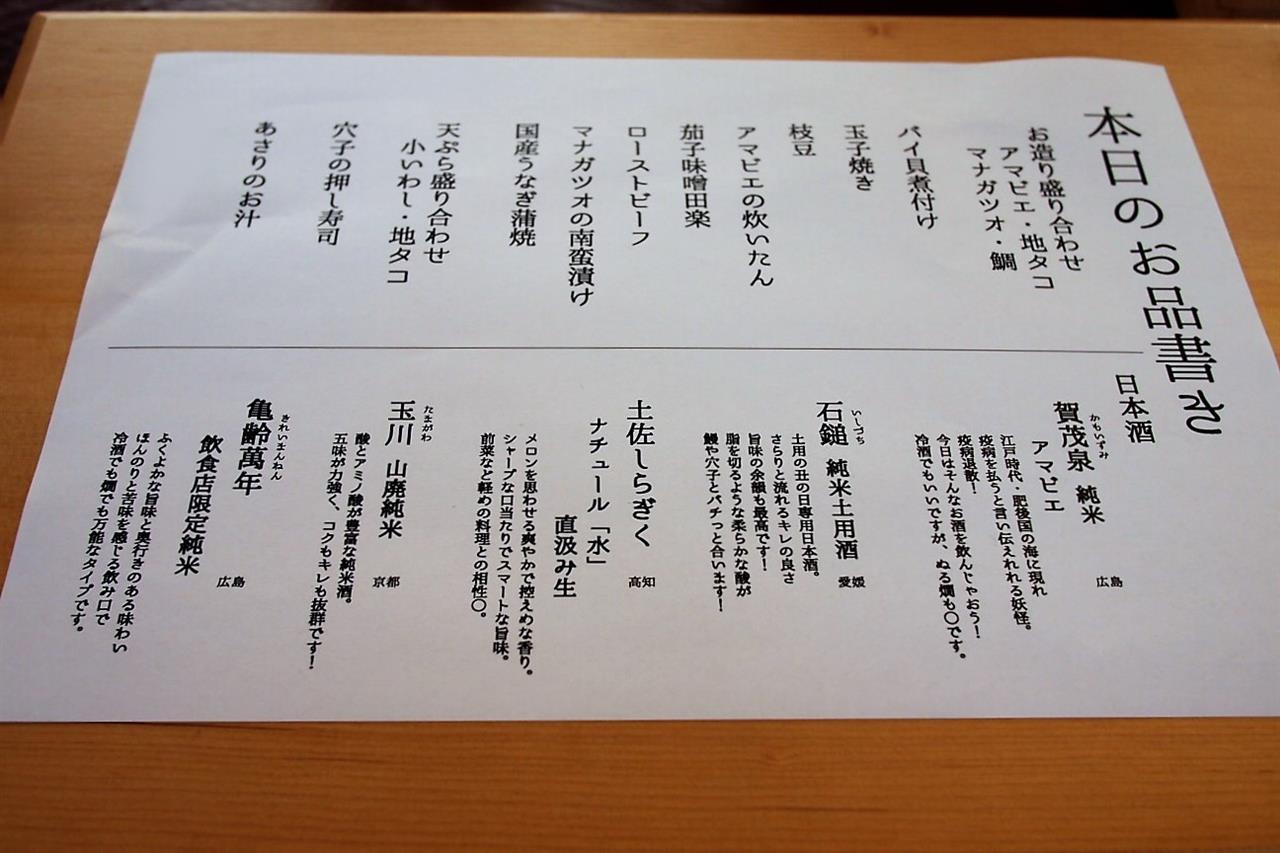 本日のお品書き
お造り盛り合わせ
アマビエ・地タコ
マナガツオ・鯛
バイ貝煮付け
玉子焼き
枝豆
アマビエの炊いたん
茄子味噌田楽
ローストビーフ
マナガツオの南蛮漬け
国産うなぎ蒲焼
天ぷら盛り合わせ
小いわし・地タコ
穴子の押し寿司
あさりのお汁
日本酒
かもいずみ
賀茂泉 純米
アマビエ
広島
江戸時代・肥後国の海に現れ
疫病を払うと言い伝えれれる妖怪。
疫病退散！
今日はそんなお酒を飲んじゃおう！
冷酒でもいいですが、ぬる燗も〇です。
いしづち
石鎚 純米土用酒
愛媛
土用の丑の日専用日本酒。
さらりと流れるキレの良さ
旨味の余韻も最高です！
脂を切るような柔らかな酸が
鰻や穴子とバチっと合います！
土佐しらぎく
ナチュール「水」
直汲み生
高知
メロンを思わせる爽やかで控えめな香り。
シャープな口当たりでスマートな旨味。
前菜など軽めの料理との相性〇。
たまがわ
玉川 山廃純米
京都
酸とアミノ酸が豊富な純米酒。
五味が力強く、コクもキレも抜群です！
きれいまんねん
亀齢萬年
飲食店限定純米
広島
ふくよかな旨味と奥行きのある味わい
ほんのりと苦味を感じる飲み口で
冷酒でも燗でも万能なタイプです。